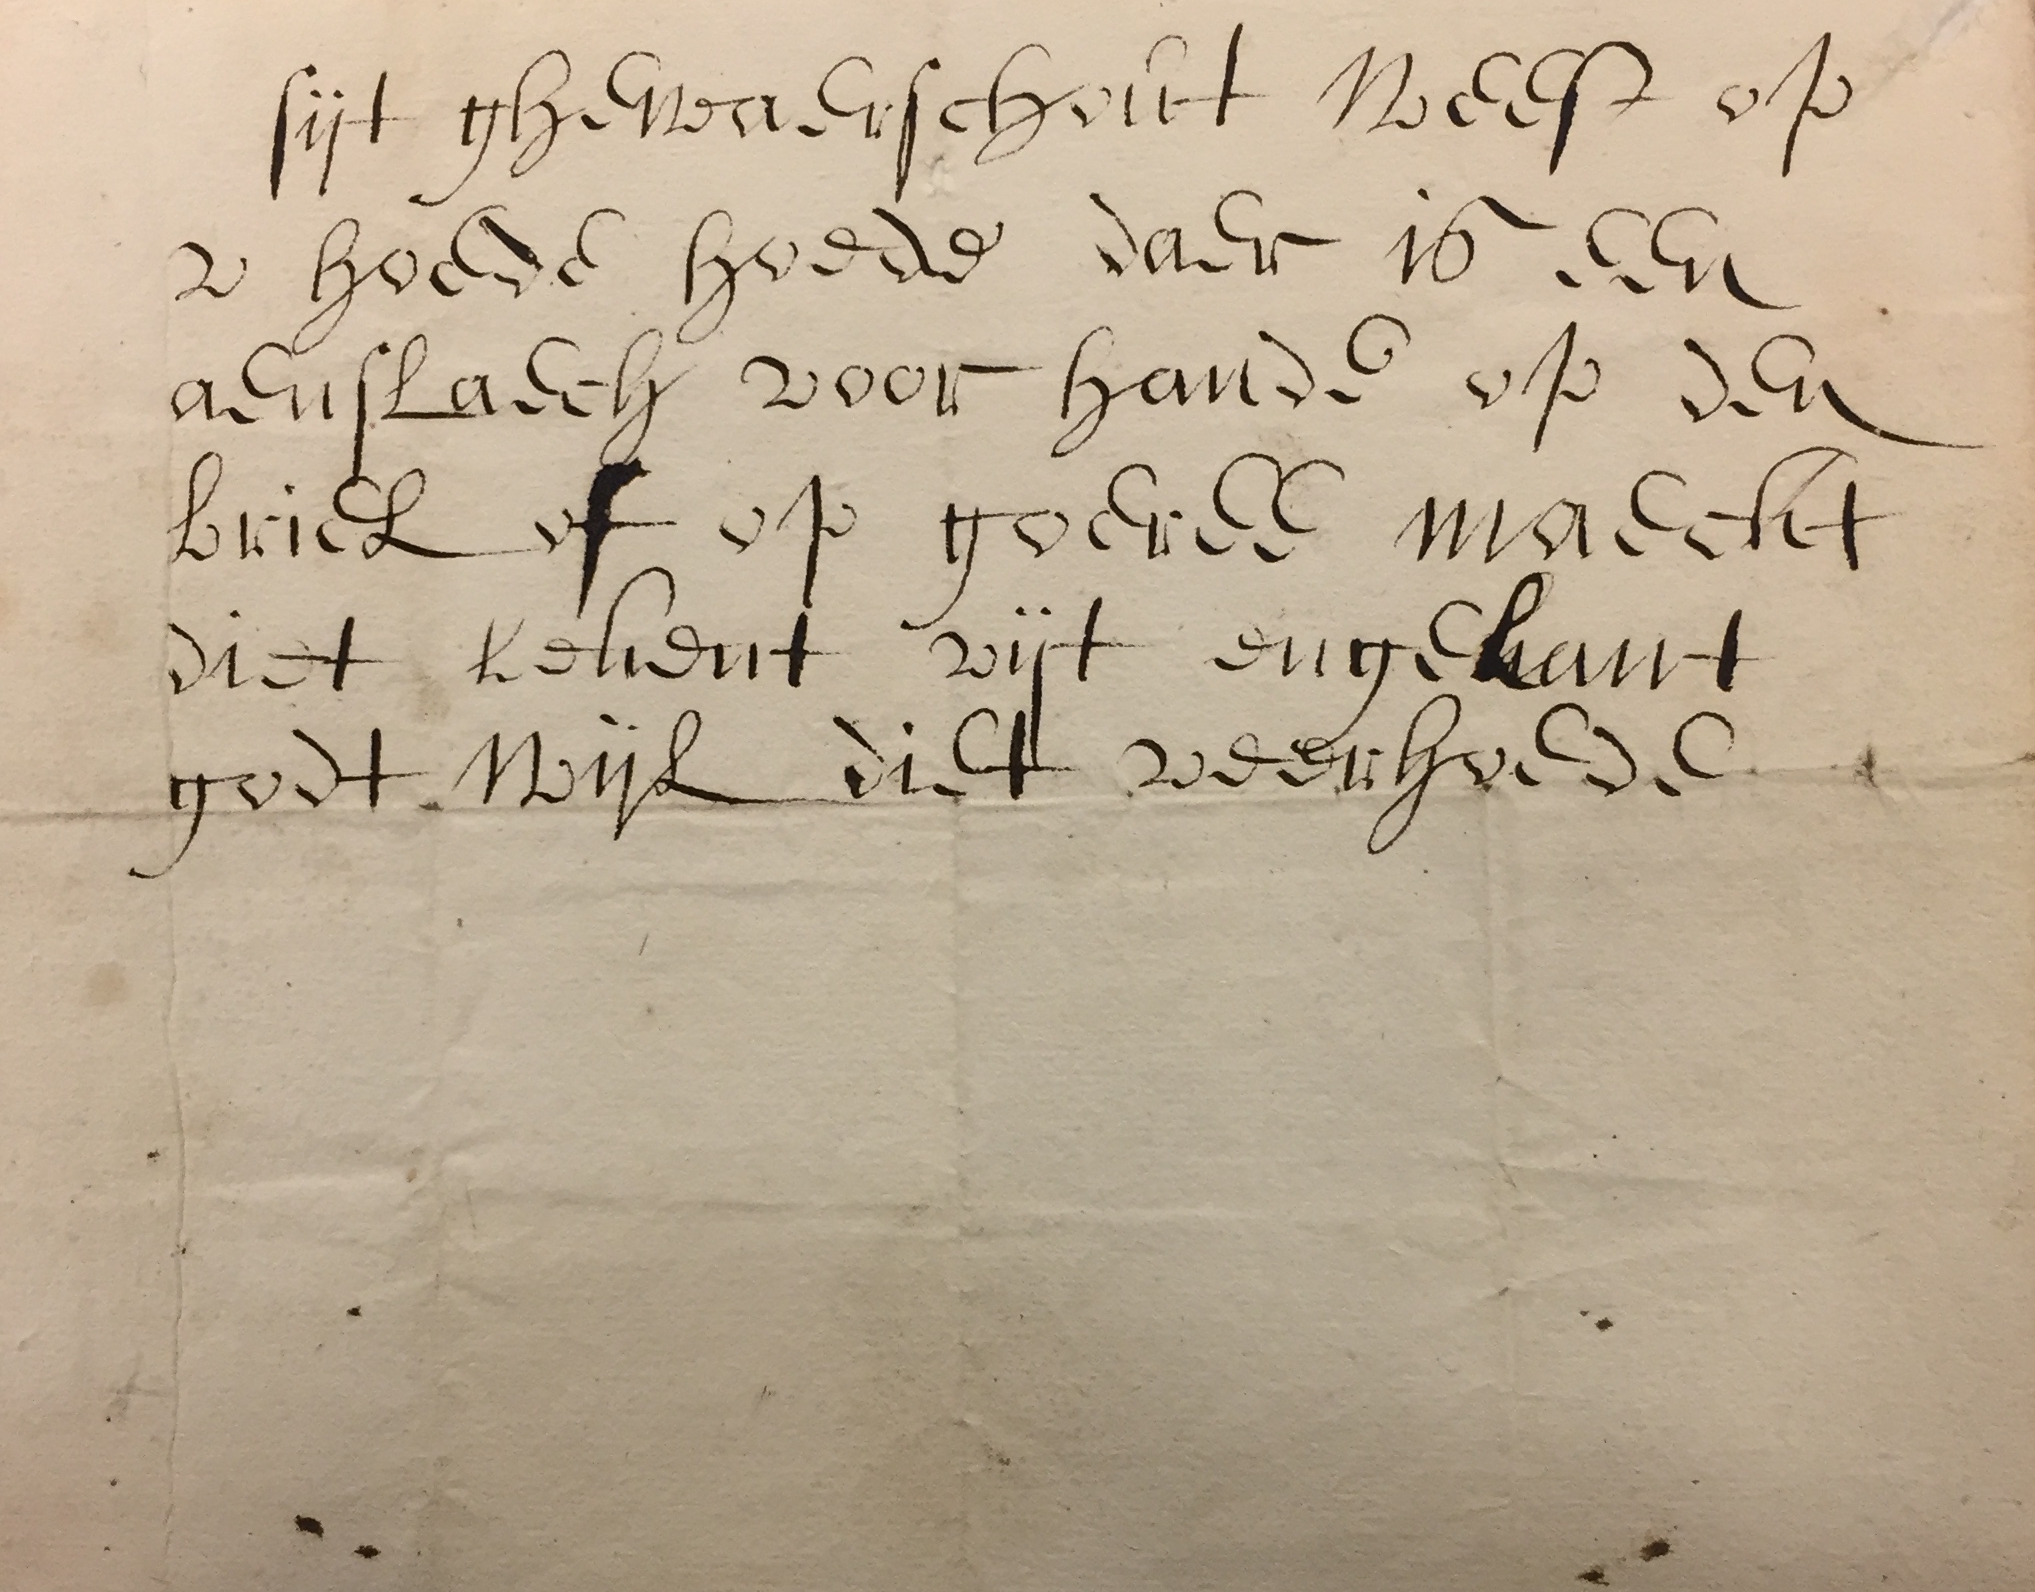 sijt ghewaerschout weest op
v hoede hoede daer is een
aenslaech voor hande op den
briel of op goeree maeckt
diet bekent uijt engelant
godt wijl diet verhoede